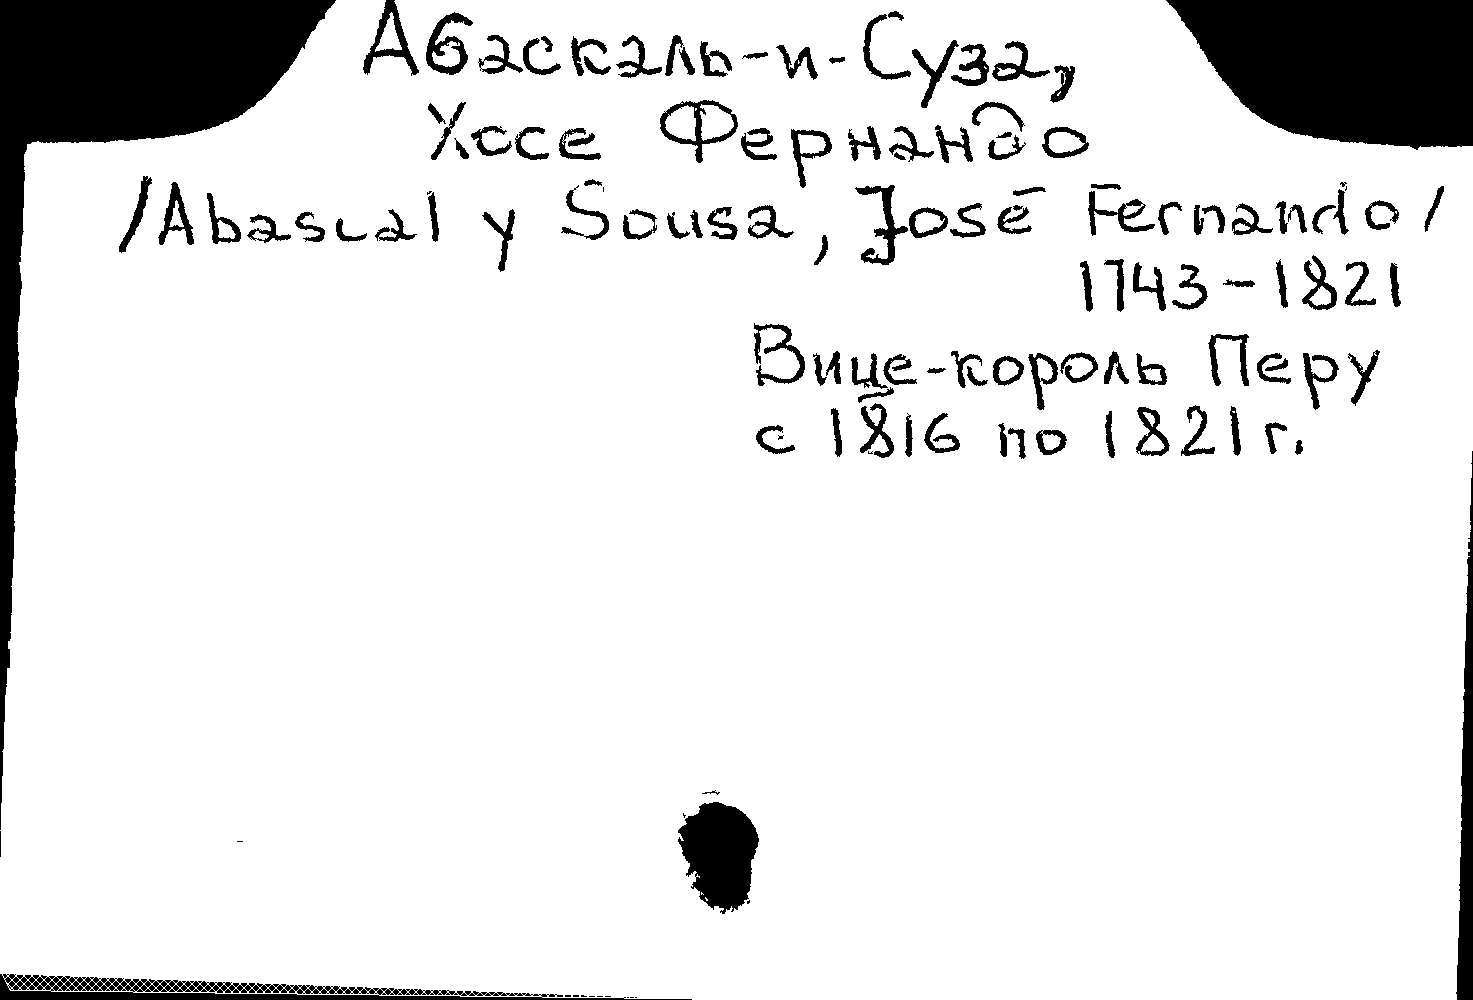 Абаскаль-и-Суза,
Хосе Фернандо
/Abascal y Sousa, José Fernando/
1743-1821
Вице-король Перу
с 1816 по 1821 г.